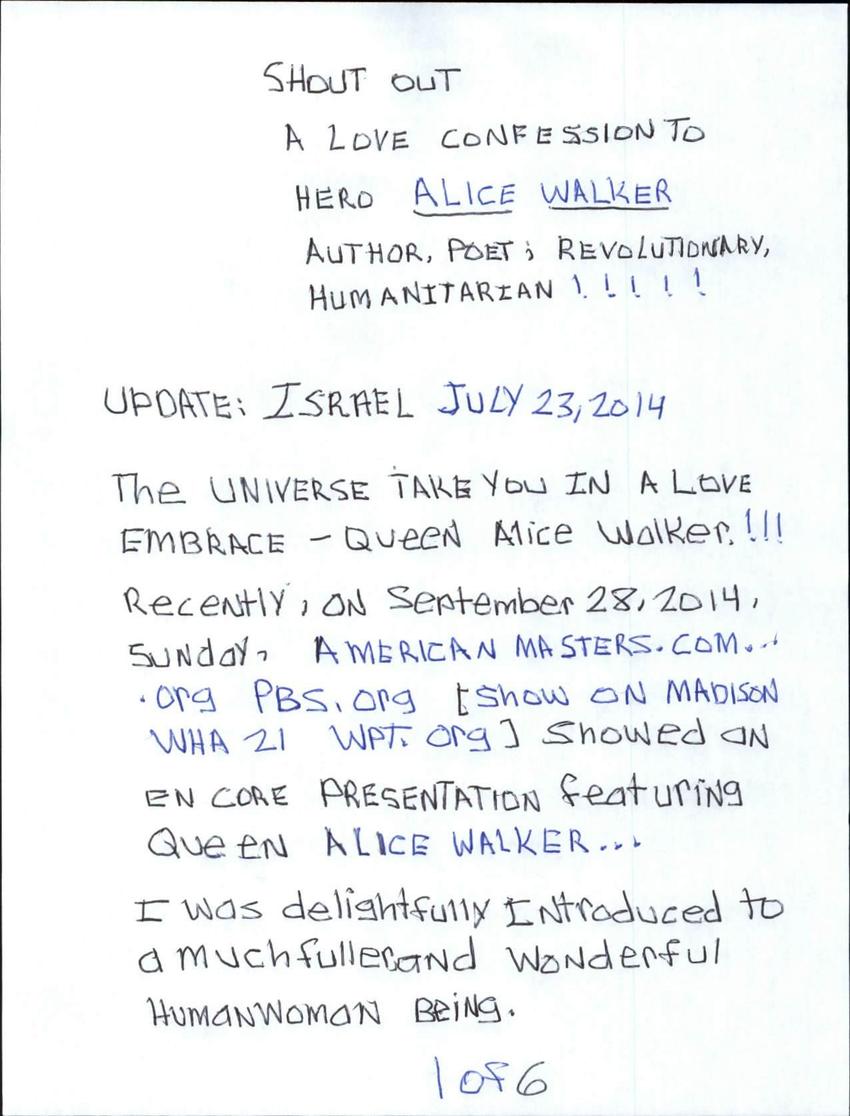 SHOUT OUT
A LOVE CONFESSION TO
HERO ALICE WALKER
AUTHOR, POET; REVOLUTIONARY,
HUMANITARIAN !!!!!
UPDATE: ISRAEL JULY 23, 2014
The UNIVERSE TAKE YOU IN A LOVE
EMBRACE – QUEEN Alice Walker.!!!
Recently, ON September 28, 2014,
SUNday, AMERICAN MASTERS.COM...
.org PBS.org [Show ON MADISON
WHA 21 WPT. org] Showed aN
ENCORE PRESENTATION featuring
QueeN ALICE WALKER...
I was delightfully INtroduced to
a much fuller and WoNderful
HUMANWOMAN BEiNg.
1 of 6